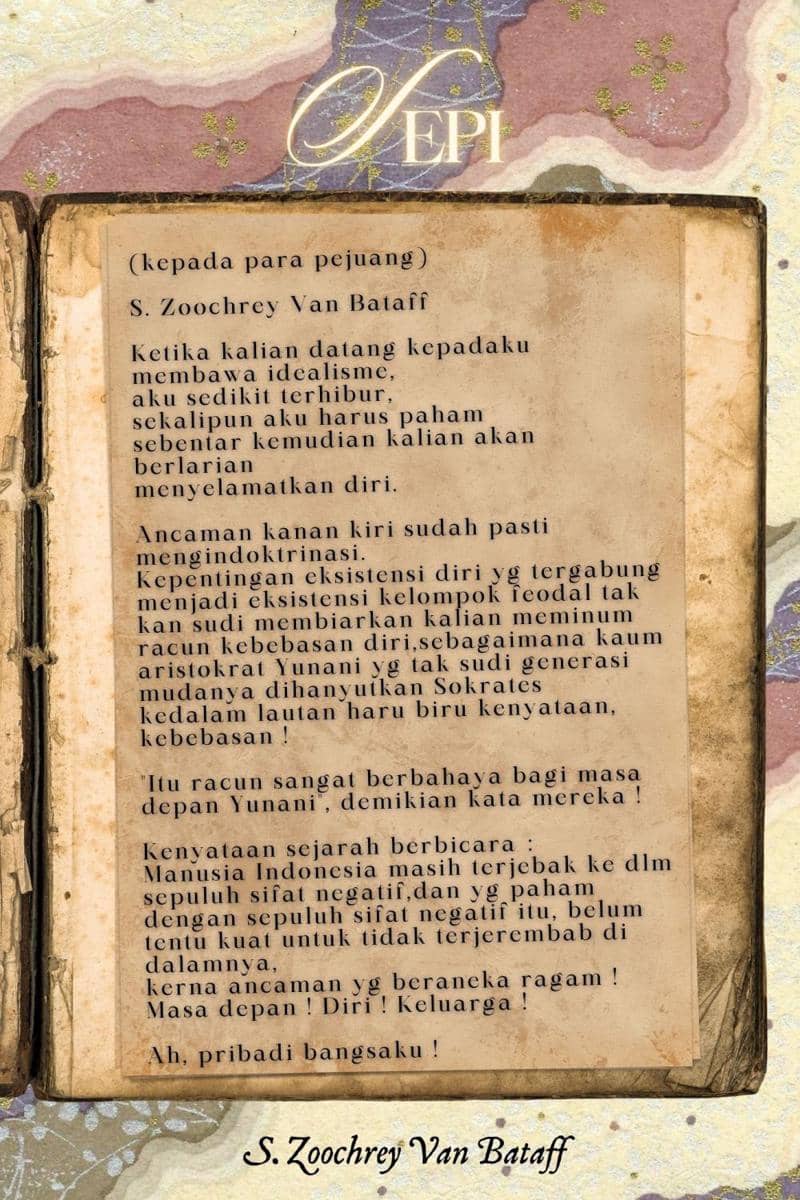 SEPI
(kepada para pejuang)
S. Zoochrey Van Bataff
Ketika kalian datang kepadaku
membawa idealisme,
aku sedikit terhibur,
sekalipun aku harus paham
sebentar kemudian kalian akan
berlarian
menyelamatkan diri.
Ancaman kanan kiri sudah pasti
mengindoktrinasi.
Kepentingan eksistensi diri yg tergabung
menjadi eksistensi kelompok feodal tak
kan sudi membiarkan kalian meminum
racun kebebasan diri,sebagaimana kaum
aristokrat Yunani yg tak sudi generasi
mudanya dihanyutkan Sokrates
kedalam lautan haru biru kenyataan,
kebebasan !
"Itu racun sangat berbahaya bagi masa
depan Yunani", demikian kata mereka !
Kenyataan sejarah berbicara :
Manusia Indonesia masih terjebak ke dlm
sepuluh sifat negatif,dan yg paham
dengan sepuluh sifat negatif itu, belum
tentu kuat untuk tidak terjerembab di
dalamnya,
kerna ancaman yg beraneka ragam !
Masa depan ! Diri ! Keluarga !
Ah, pribadi bangsaku !
S. Zoochrey Van Bataff